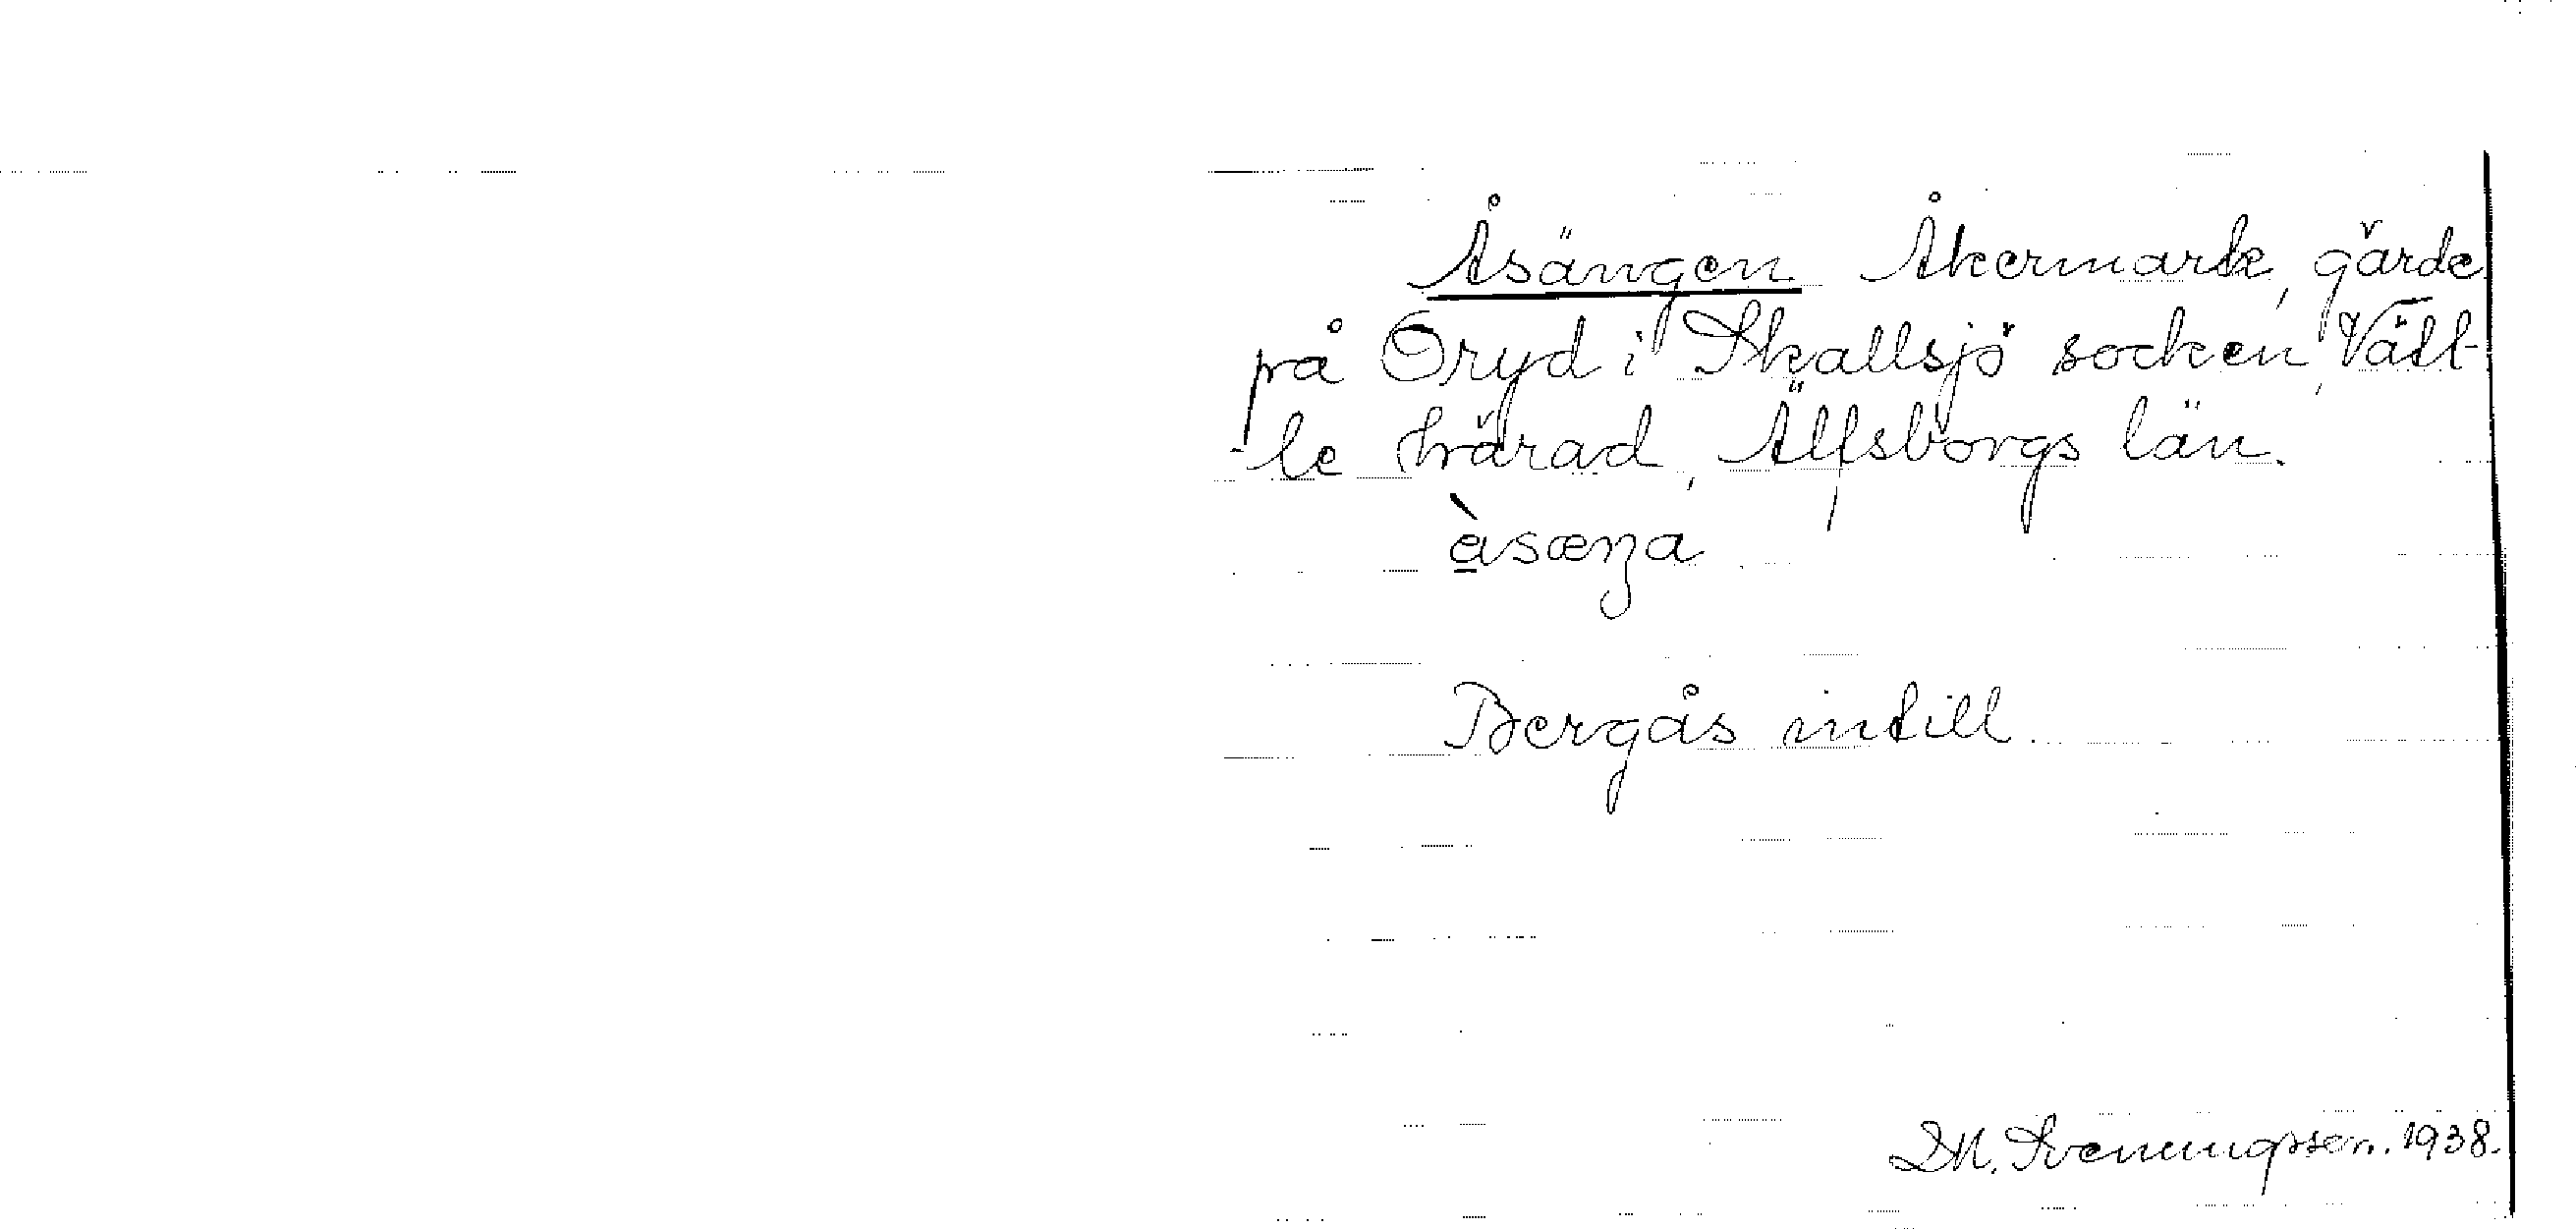 Åsängen Åkermark, gärde
på Öryd i Skallsjö socken, Vätt-
le härad, Älfsborgs län.
Bergås intill.
Svenungsson. 1938.